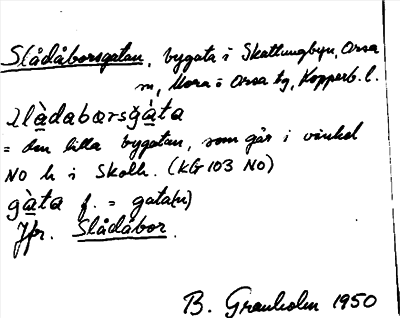 Slådåborsgatan, bygata i Skattungbyn, Orsa
sn, Mora o Orsa tg, Kopparb. l.
slàdabarsgàta
= den lilla bygatan, som går i vinkel
NO h i Skatt. (KG 103 NO)
gàta f. = gata(n)
Jfr. Slådåbor.
B. Granholm 1950